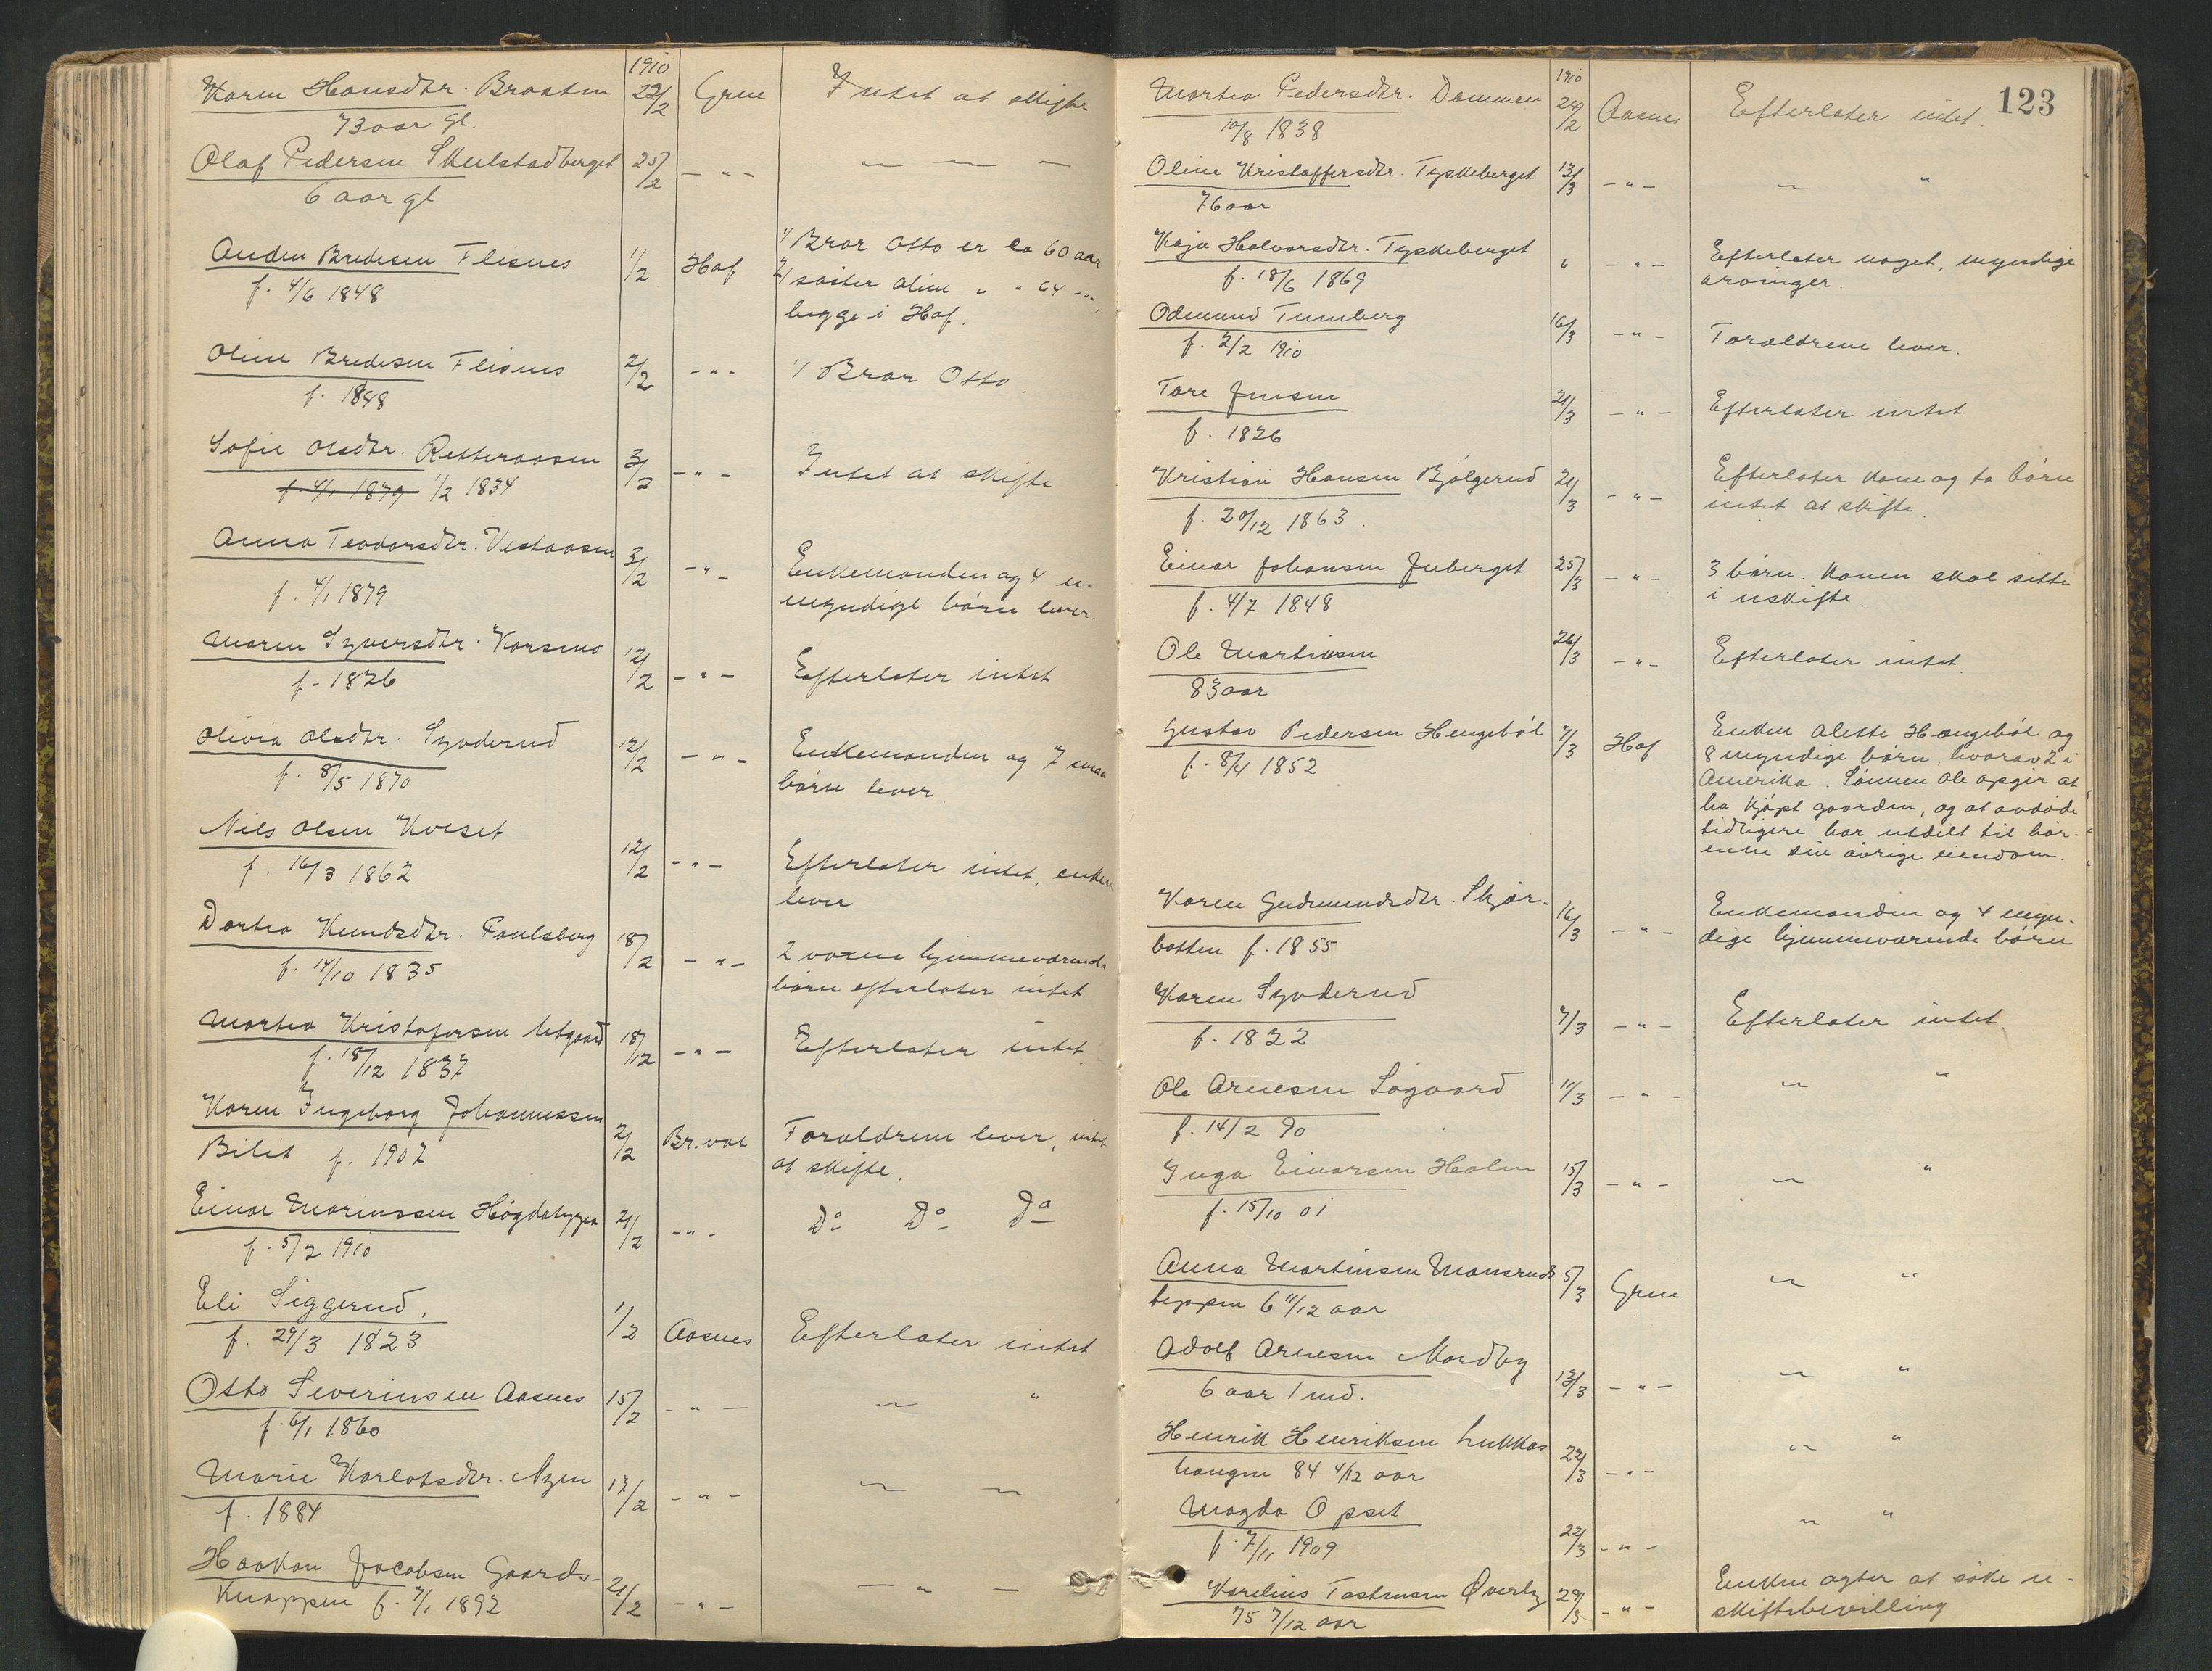 1910
Karen Hansdtr. Braaten 22/2 Grue Intet at skifte
73 aar gl.
Olaf Pedersen Skulstadberget 25/2 — " — — — —
6 aar gl
Anden Bredesen Flisnes 1/2 Hof 1/ Bror Otto er ca 60 aar
f. 4/6 1848 2/ søster Oline " " 64 - "
begge i Hof.
Oline Bredesen Flisnes 2/2 - " - 1/ Bror Otto.
f. 1848
Sofie Olsdtr. Retteraasen 3/2 — " — Intet at skifte
f. 4/1 1879 1/2 1834
Anna Teodorsdtr. Vestaasen 3/2 — " — Enkemanden og 4 u-
f. 4/1 1879 myndige børn lever.
Maren Syversdtr. Korsmo 12/2 — " — Efterlater intet
f. 1826
Olivia Olsdtr. Synderud 12/2 — " — Enkemanden og 7 smaa
f. 8/5 1870 børn lever
Nils Olsen Kveset 12/2 — " — Efterlater intet, enken
f. 16/3 1862 lever
Dortea Knudsdtr. Poulsberg 18/2 — " — 2 voxne hjemmeværende
f. 14/10 1835 børn efterlater intet
Martea Kristofersen Utgaard 18/12 — " — Efterlater intet.
f. 18/12 1837
Karen Ingeborg Johannessen 2/2 Br.vol Forældrene lever, intet
Bilit f. 1907 at skifte.
Einar Marinssen Høgdatyppen 21/2 — " — Do Do Do
f. 5/2 1910
Eli Siggerud. 1/2 Aasnes Efterlater intet
f. 29/3 1823
Otto Severinsen Aasnes 15/2 — " — — "
f. 6/1 1860
Marie Karlotsdtr. Nyen 17/2 — " — — —
f. 1884
Haakon Jacobsen Gaards- 21/2 — " — — " —
knappen f. 7/1 1892
123
1910
Martea Pedersdtr. Dammen 24/2 Aasnes Efterlater intet
10/8 1838
Oline Kristoffersdtr. Tyskeberget 13/3 — " — — "
76 aar
Kaja Halvorsdtr. Tyskeberget " — " — Efterlater noget, myndige
f. 18/6 1869 arvinger.
Odmund Tumberg 16/3 — " — Forældrene lever.
f. 2/2 1910
Tore Jensen 21/3 — " — Efterlater intet
f. 1826
Kristian Hansen Bjølgerud 21/3 — " — Efterlater kone og to børn
f. 20/12 1863. intet at skifte.
Einar Johansen Juberget 25/3 — " — 3 børn. Konen skal sitte
f. 4/7 1848 i uskifte.
Ole Martinsen 26/3 — " — Efterlater intet.
83 aar
Gustav Pedersen Hengebøl 7/3 Hof Enken Alette Hængebøl og
f. 8/4 1852 8 myndige børn, hvorav 2 i
Amerika. Sønnen Ole opgir at
ha kjøpt gaarden, og at avdøde
tidligere har utdelt til bør-
nene sin øvrige eiendom.
Karen Gudmundsdtr. Skjær- 16/3 — " — Enkemanden og 4 myn-
botten f. 1855 dige hjemmeværende børn
Karen Synderud 7/3 — " — Efterlater intet.
f. 1822
Ole Arnesen Søgaard 11/3 — " — — "
f. 14/2 90
Inga Einarsen Holm 15/3 — " — — "
f. 15/10 01
Anna Martinsen Monsruds 5/3 Grue — "
teppen 6 11/12 aar
Adolf Arnesen Nordby 13/3 — " — — "
6 aar 1 md.
Henrik Henriksen Lukkas 22/3 — " — — "
haugen 84 4/12 aar
Magda Opset 22/3 — " — — "
f. 7/11 1909
Karelius Tostensen Øverby 29/3 — " — Enken agter at søke u-
75 7/12 aar skiftebevilling